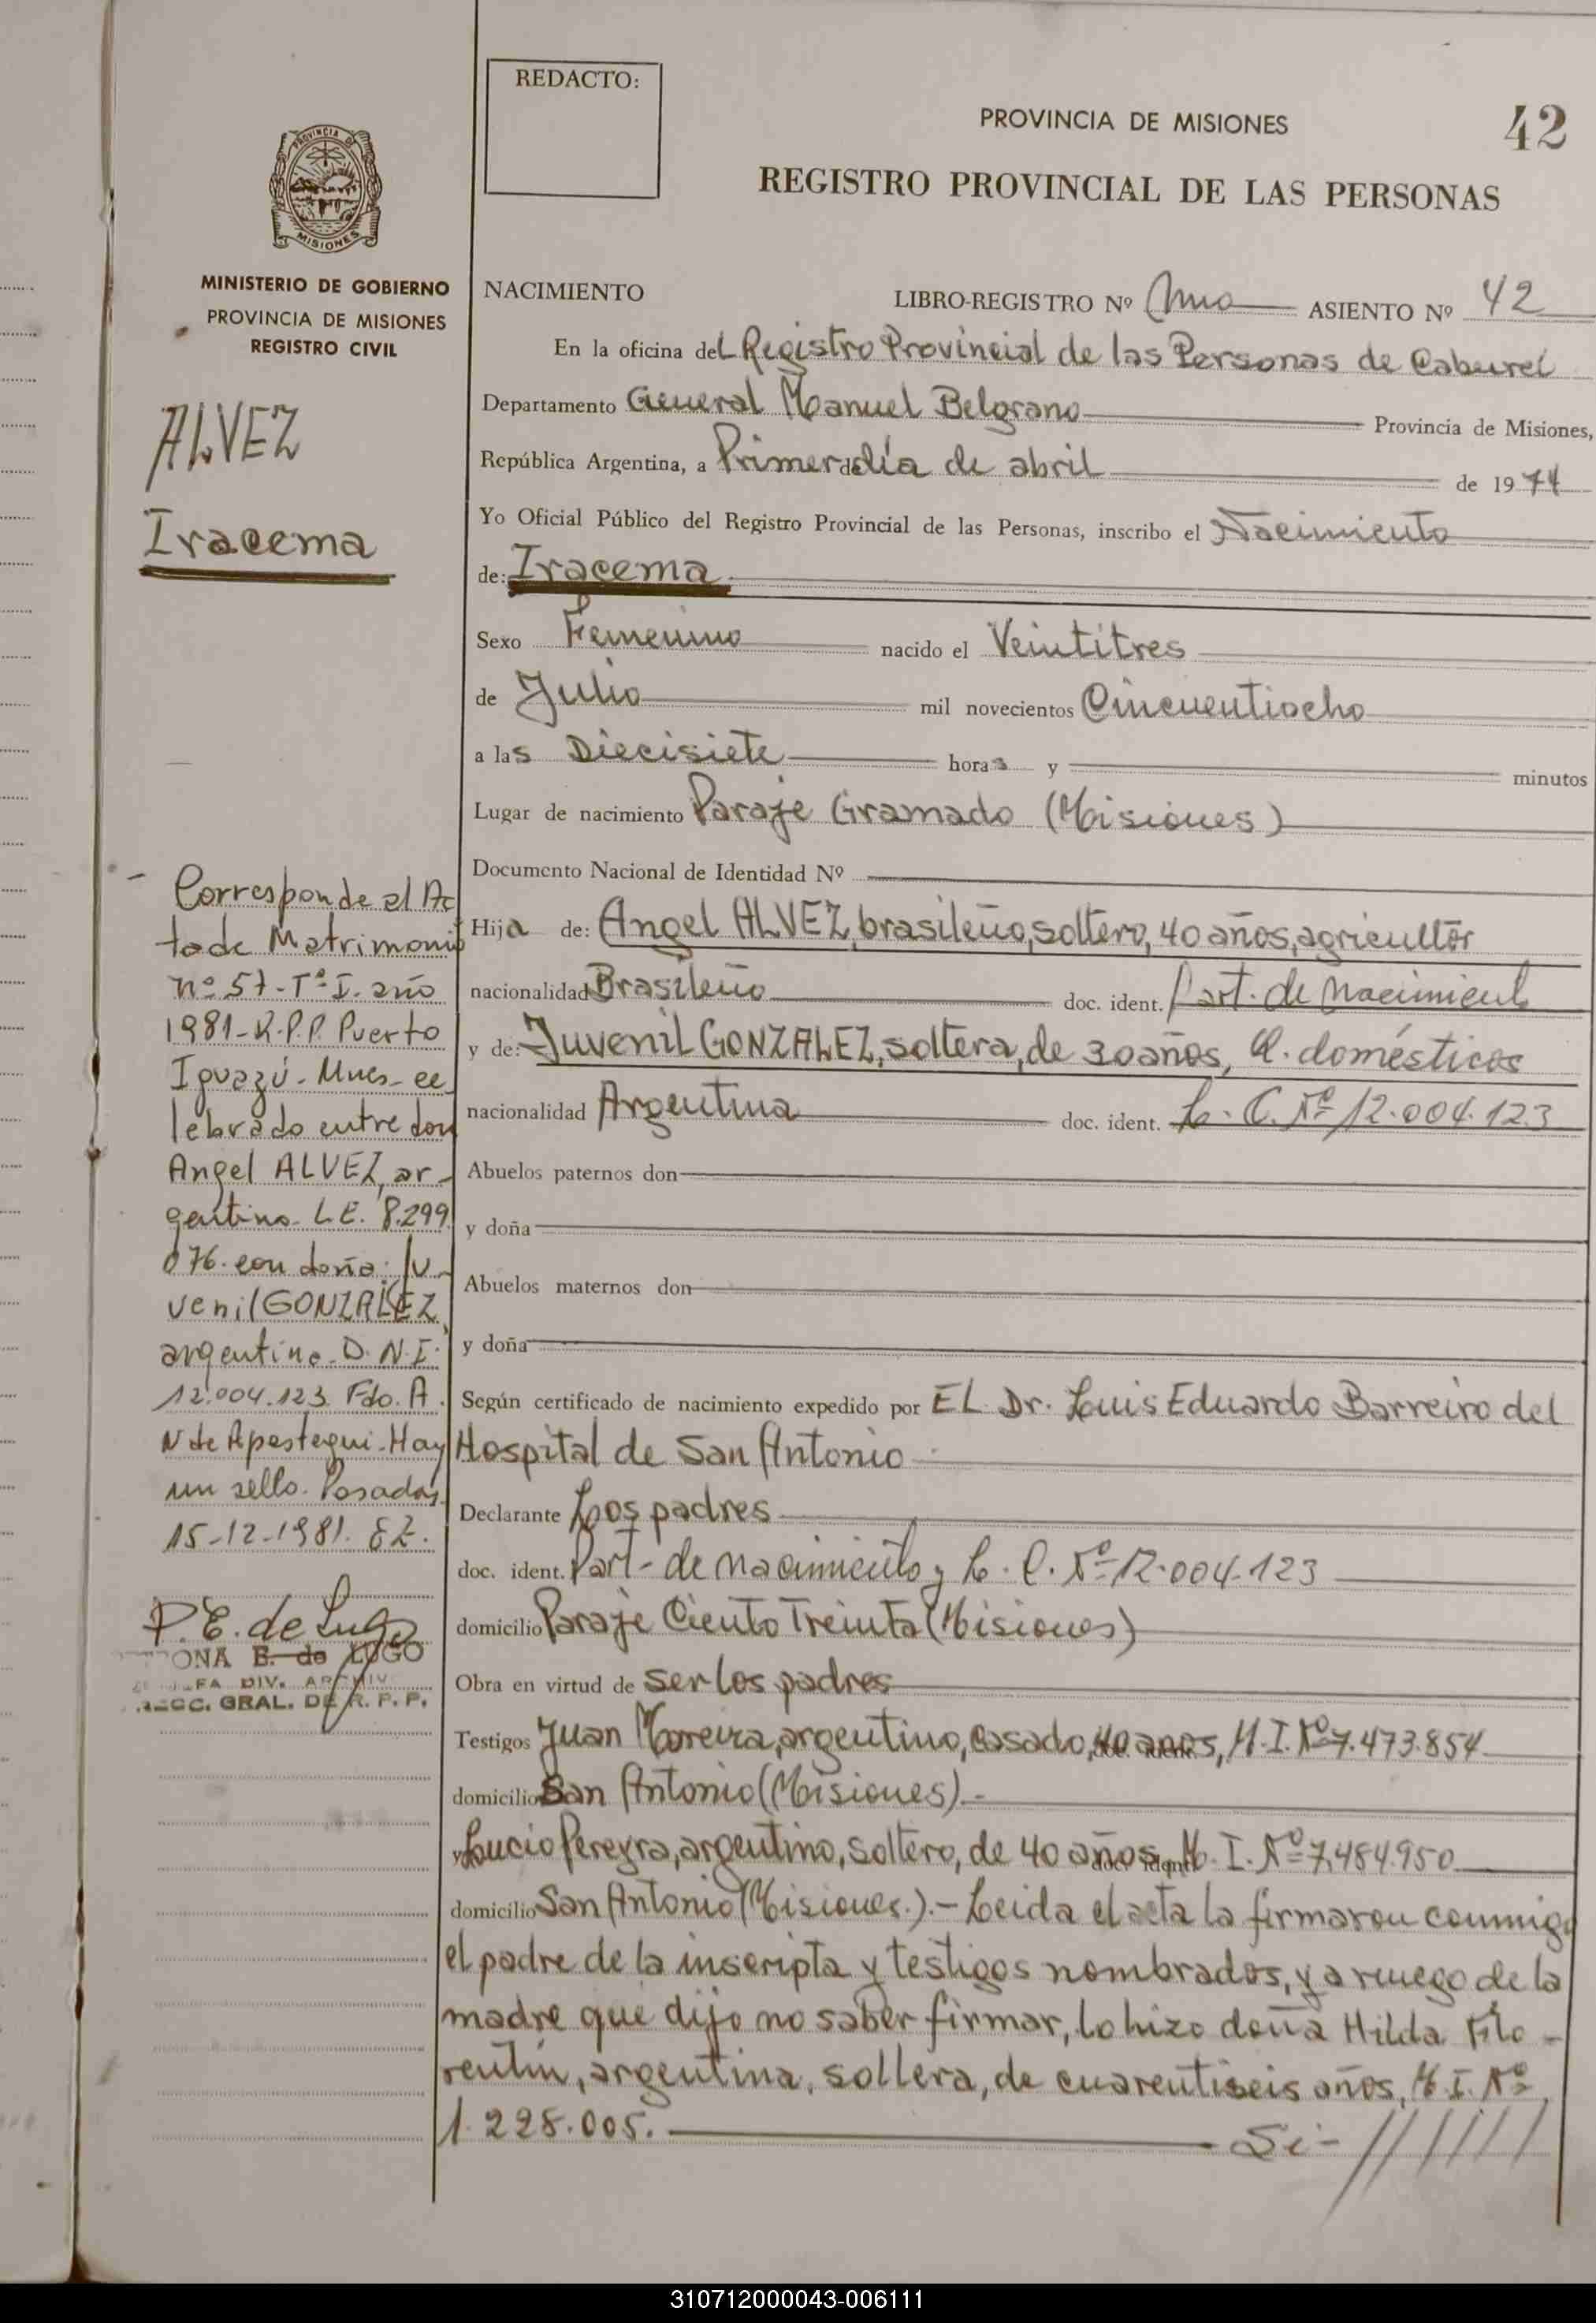 REDACTO:
PROVINCIA DE MISIONES
42
REGISTRO PROVINCIAL DE LAS PERSONAS
PROVINCIA DE
MISIONES
MINISTERIO DE GOBIERNO
PROVINCIA DE MISIONES
REGISTRO CIVIL
ALVEZ
Iracema
Corresponde el Ac
ta de Matrimonio
nº 57-Tº I. año
1981-R.P.P. Puerto
Iguazú- Mnes- ce
lebrado entre don
Angel ALVEZ, ar-
gentino- L.E. 8.299
076. con doña: Ju-
venil GONZALEZ,
argentina- D.N.I.
12.004.123. Fdo. A.
N de Apestegui. Hay
un sello. Posadas,
15-12-1981. EZ.
P.E. de Lugo
ONA E. de LUGO
FA DIV. ARCHIV
GRAL. DE R. P. P.
NACIMIENTO LIBRO-REGISTRO Nº Uno ASIENTO Nº 42
En la oficina del Registro Provincial de las Personas de Caburei
Departamento General Manuel Belgrano Provincia de Misiones,
República Argentina, a Primer día de abril de 1974
Yo Oficial Público del Registro Provincial de las Personas, inscribo el Nacimiento
de: Iracema
Sexo Femenino nacido el Veintitres
de Julio mil novecientos Cincuentiocho
a las Diecisiete horas y minutos
Lugar de nacimiento Paraje Gramado (Misiones)
Documento Nacional de Identidad Nº
Hija de: Angel ALVEZ, brasileño, soltero, 40 años, agricultor
nacionalidad Brasileño doc. ident. Part. de Nacimient
y de: Juvenil GONZALEZ, soltera, de 30 años, Q. domésticos
nacionalidad Argentina doc. ident. L. C. Nº 12.004.123
Abuelos paternos don
y doña
Abuelos maternos don
y doña
Según certificado de nacimiento expedido por EL Dr. Luis Eduardo Barreiro del
Hospital de San Antonio
Declarante Los padres
doc. ident. Part- de Nacimiento y L. C. Nº 12.004.123
domicilio Paraje Ciento Treinta (Misiones)
Obra en virtud de ser los padres
Testigos Juan Moreira, argentino, casado, 40 anos, M.I. Nº 7.473.854
domicilio San Antonio (Misiones).-
y Lucio Pereyra, argentino, soltero, de 40 años, M. I. Nº 7.484.950
domicilio San Antonio (Misiones.).- Leida el acta la firmaron conmigo
el padre de la inscripta y testigos nombrados, y a ruego de la
madre que dijo no saber firmar, lo hizo doña Hilda Flo-
rentin, argentina, soltera, de cuarentiseis años, M. I. Nº
1.228.005. Si- //////
310712000043-006111